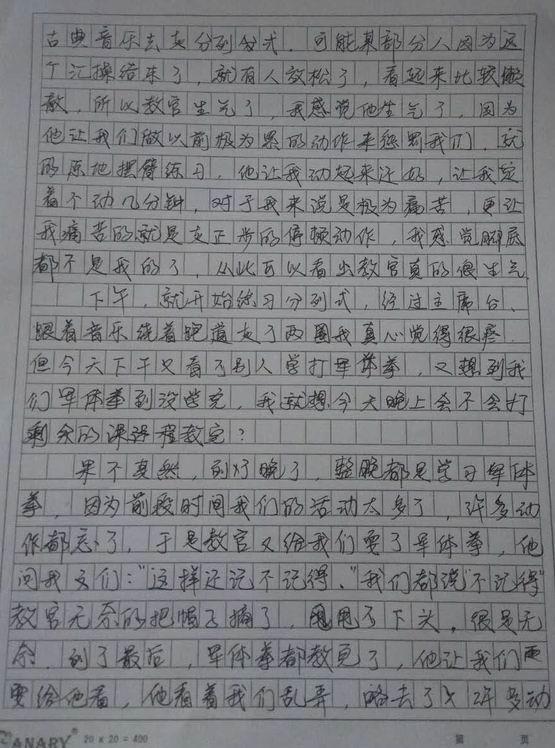 古典音乐去走分列分式，可能某部分人因为这
个汇操结束了，就有人放松了，看起来比较懒
散，所以教官生气了，我感觉他生气了，因为
他让我们做以前极为累的动作来惩罚我们，就
的原地摆臂练习，他让我动起来还好，让我定
着不动几分钟，对于我来说是极为痛苦，更让
我痛苦的就是走正步的停顿动作，我感觉脚底
都不是我的了，从此可以看出教官真的很生气
下午，就开始练习分列式，经过主席台，
跟着音乐绕着跑道走了两圈我真心觉得很疼
但今天下午又看了别人学打军体拳，又想到我
们军体拳到没学完，我就想今天晚上会不会打
剩余的课程教完？
果不其然，到了晚了，整晚都是学习军体
拳，因为前段时间我们的活动太多了，许多动
作都忘了，于是教官又给我们耍了军体拳，他
问我们："这样还记不记得，"我们都说"不记得"
教官无奈的把帽子摘了，甩甩了下头，很是无
奈，到了最后，军体拳都教完了，他让我们
耍给他看，他看着我们乱弄，略去了许多动
CANARY 20 x 20 = 400 第 页